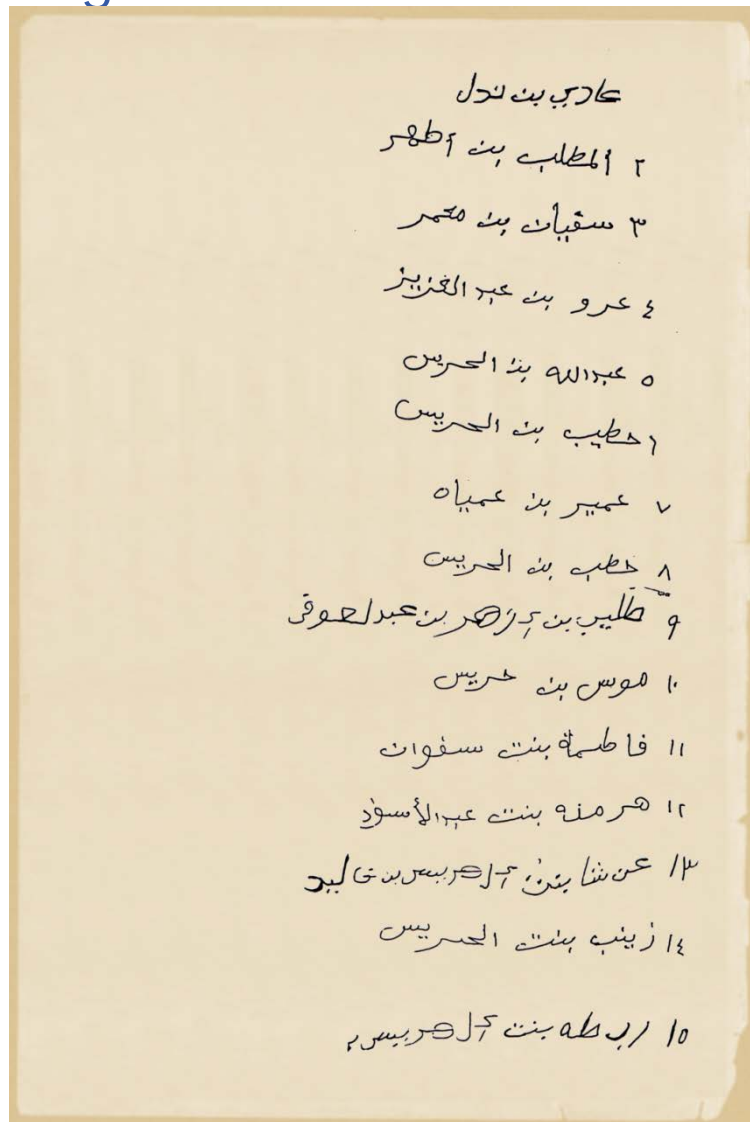 عادي بن ندل
٢ المطلب بن أطهر
٣ سفيان بن محمر
٤ عرو بن عبد الغزيز
٥ عبدالله بن الحريس
٦ حطيب بن الحريس
٧ عمير بن عمياه
٨ خطب بن الحريس
٩ طليب بن إزهر بن عبد لعوقى
١٠ موس بن حريس
١١ فاطمة بنت سفوان
١٢ هرمنه بنت عبدالأسود
١٣ عن شا بنت الهريس بن خالبد
١٤ زينب بنت الحريس
١٥ ربطه بنت الهريس